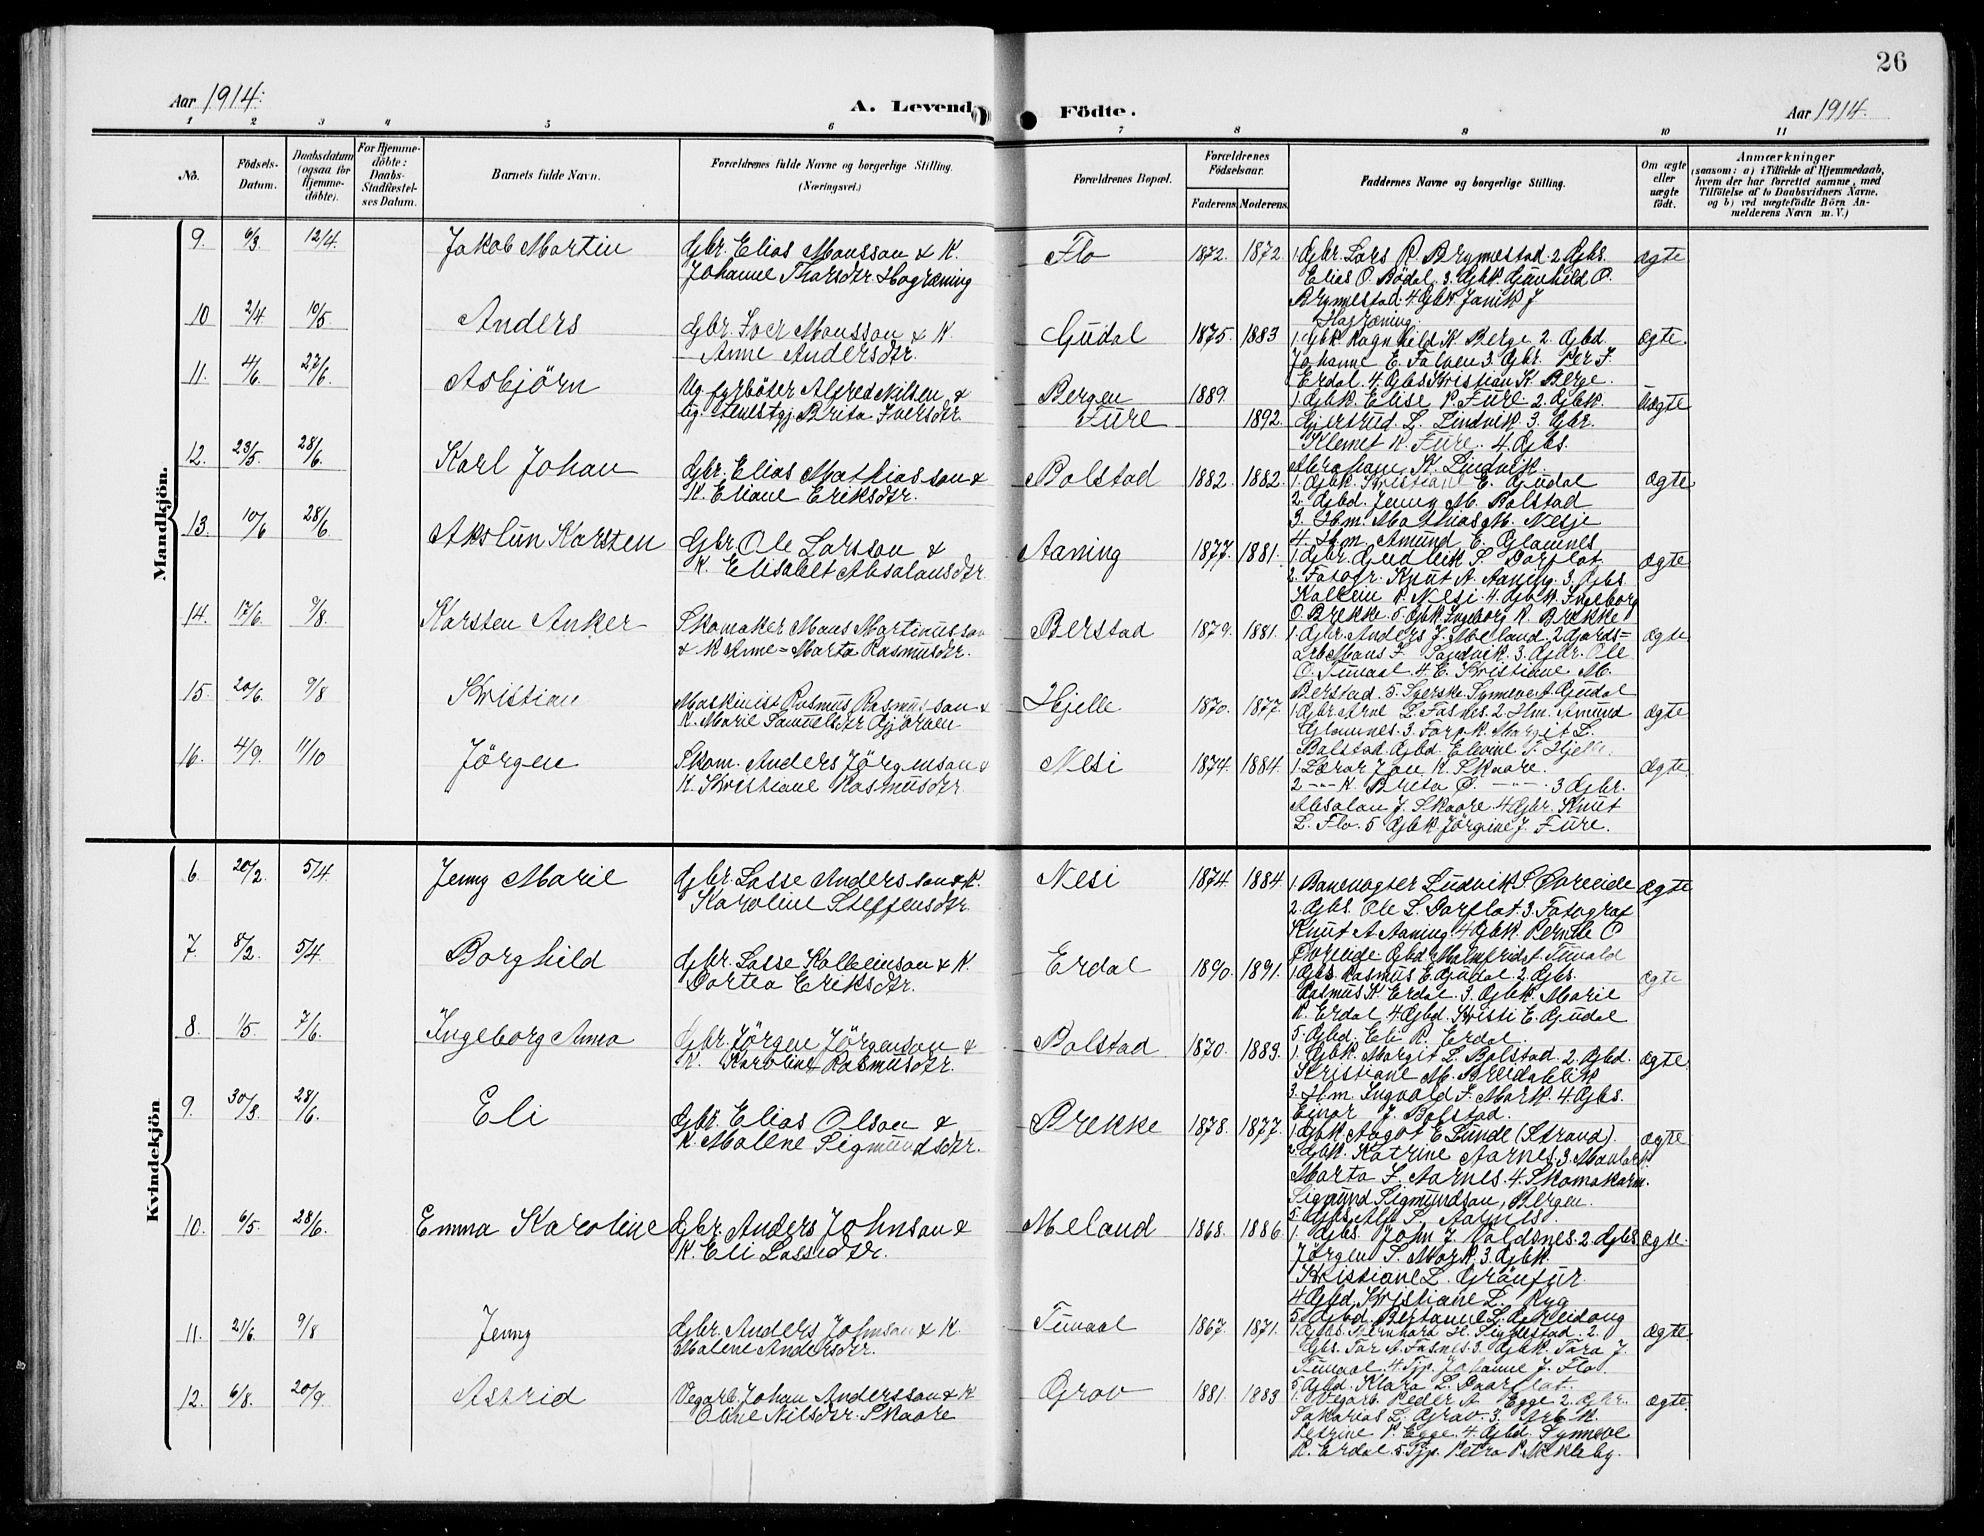 26
Aar 1914.
A. Levende Födte.
Aar 1914.
1 2 3 4 5 6 7 8 9 10 11
No.
Födsels-Datum.
Daabsdatum (ogsaa for Hjemme-döbte).
For Hjemme-döbte: Daabs-Stadfæstel-ses Datum.
Barnets fulde Navn.
Forældrenes fulde Navne og borgerlige Stilling.
(Næringsvei.)
Forældrenes Bopæl.
Forældrenes Födselsaar.
Faderens. Moderens.
Faddernes Navne og borgerlige Stilling.
Om ægte eller uægte födt.
Anmærkninger
(saasom: a) i Tilfælde af Hjemmedaab, hvem der har forrettet samme, med Tilföielse af to Daabsvidners Navne, og b) ved uægtefödte Börn An-melderens Navn m. V.)
Mandkjön.
9. 6/3 12/4. Jakob Martin Gbr. Elias Monsson & K. Flo 1872. 1872 1. Gbr. Lars R. Brynestad 2. Gbs. ægte
Johanne Thorsdtr. Hogrening Elias O. Bödal. 3. Gbk. Gunhild O.
Brynestad. 4 Gbr. Janik J
Hogrening.
10 2/4 10/5. Anders Gbr. Iver Monsson & K Gudal 1875. 1883 1. Gbk Ragnhild K Berge 2. Gbd. ægte.
Anne Andersdtr. Johanne E. 3. Gbr. Per J.
Erdal. 4. Gbs Kristian K. Berge.
11. 4/6. 27/6. Asbjörn Ug. fyrböter Alfred Nilsen & Bergen 1889 1. Gbk. Elise P. Fure. 2. Gbk. uægte
ug. Brita Iversdtr. Fure 1892. Gjertrud L. Lindvik 3. Gbr.
Klemet K. Fure. 4. Gbs.
Abraham K. Lindvik.
12. 23/5. 28/6. Karl Johan Gbr. Elias Mathiasson & Bolstad 1882. 1882. 1. Gbk. Kristiane E. Gudal ægte
K. Eliane Eriksdtr. 2. Gbd. Jenny M. Bolstad
3. Hm. Mathias M. Nesje
4. Hm. Amund E. Glomnes
13. 10/6 28/6 Akslun Karsten Gbr. Ole Larsson & Aaning 1877. 1881. 1. Gbr. Gudleik S. Dorflot ægte
K. Elisabet Absalonsdtr. 2. Fotogr. Knut A. Aaning. 3. Gbs.
Kolbein R. Nesi. 4. Gbk. Ingeborg
O. Brekke. 5. Gbk. Ingeborg R. Brekke
14. 17/6. 9/8. Karsten Anker Skomaker Mons Martinusson Berstad 1879. 1881. 1. Gbr. Anders J. Meland. 2. Gards= ægte
& K Anne-Marta Rasmusdtr. arb Mons L. Sandvik. 3. Gbr. Ole
O. Tunaal 4. E. Kristiane M.
Berstad. 5. Synneve A. Gudal
15. 20/6. 9/8 Kristian Maskinist Rasmus Rasmusson & Hjelle 1870. 1877. 1. Gbr. Arne L. Fosnes. 2. Hm. Amund ægte
K. Marie Samuelsdtr. Gjörven Glomnes. 3. Margit L.
Bolstad. Gbd. Elvine T. Hjelle.
16. 4/9. 11/10 Jörgen Skom. Anders Jörgenson & Nesi 1874. 1884. 1. Lærer Jon K. Skaare. ægte.
K. Kristiane Rasmusdtr. 2 --- K. Brita O. --- 3 Gbr.
Absalon J. Skaare. 4 Gbr. Knut
L. Flo. 5 Gbk. Jörgine J. Fure.
Kvindekjön
6 20/2. 5/4. Jenny Marie Gbr. Lasse Andersson & K. Nesi 1874. 1884. 1. Banevogter Ludvik S. Övreeide ægte
Karoline Steffensdtr. 2. Gbs. Ole L. Dorflot. 3. Fotograf
Knut A Aaning. 4 Gbk. Pernille O
Övreeide Gbd. Malmfrid A. Tunold
7. 8/2. 5/4. Borghild Gbr. Lasse Kolbeinson & K. Erdal 1890. 1891. 1. Gbs. Rasmus E. Gudal. 2. Gbs. ægte
Dortea Eriksdtr. Rasmus K. Erdal. 3. Gbk. Marie
R. Erdal. 4 Gbd. Kristi E. Gudal
5. Gbd. Eli R. Erdal.
8. 1/5. 7/6. Ingeborg Anna Gbr. Jörgen Jörgenson & Bolstad 1870. 1883. 1. Gbk. Margit L. Bolstad. 2. Gbd. ægte.
K. Karoline Rasmusdtr. Kristiane M. Breidablik
3. Hm. Ingvald J. Mork. 4. Gbs.
Einar J. Bolstad.
9. 30/3. 28/6. Eli Gbr. Elias Olson & Brekke 1878. 1877. 1. Gbk Aagot E Lunde (Strand). ægte
K. Malene Sigmundsdtr. 2. Gbk. Katrine Aarnes. 3.
Marta S. Aarnes. 4. Skomakerm.
Sigmund Sigmundson, Bergen.
5. Gbs. Alf S. Aarnes.
10. 6/5. 28/6. Emma Karoline Gbr. Anders Johnson & Meland 1868. 1886. 1. Gbs. John J. Voldsnes. 2. Gbs ægte.
K. Eli Lassedtr. Jörgen S. Mork. 3. Gbk.
Kristiane L. Grönfur.
4. Gbd. Kristiane L. Ryg
5. Gbd. Bertanne L. Breidang
11. 21/6. 9/8 Jenny Gbr. Anders Johnson & K. Tunaal 1867. 1871. 1. Gbs. Bernhard H. Sigdestad. 2. ægte
Malene Andersdtr. Gbs. Tor A. Fosnes. 3. Gbk. Tora J.
Tunaal. 4. Tjp. Johanne J. Flo.
5. Gbd. Klara L. Dvorflot.
12. 6/8. 20/9. Astrid Vegarb. Johan Andersson & K Grov 1881. 1883 1. Vegarb. Peder A Egge 2. Gbr. ægte.
Oline Nilsdtr. Skaare Sakarias L. Grov. 3. Arb. K.
Petrine P. Egge. 4. Gbd. Synneve
K. Erdal. 5. Tjp. Petra P. Mekleby.